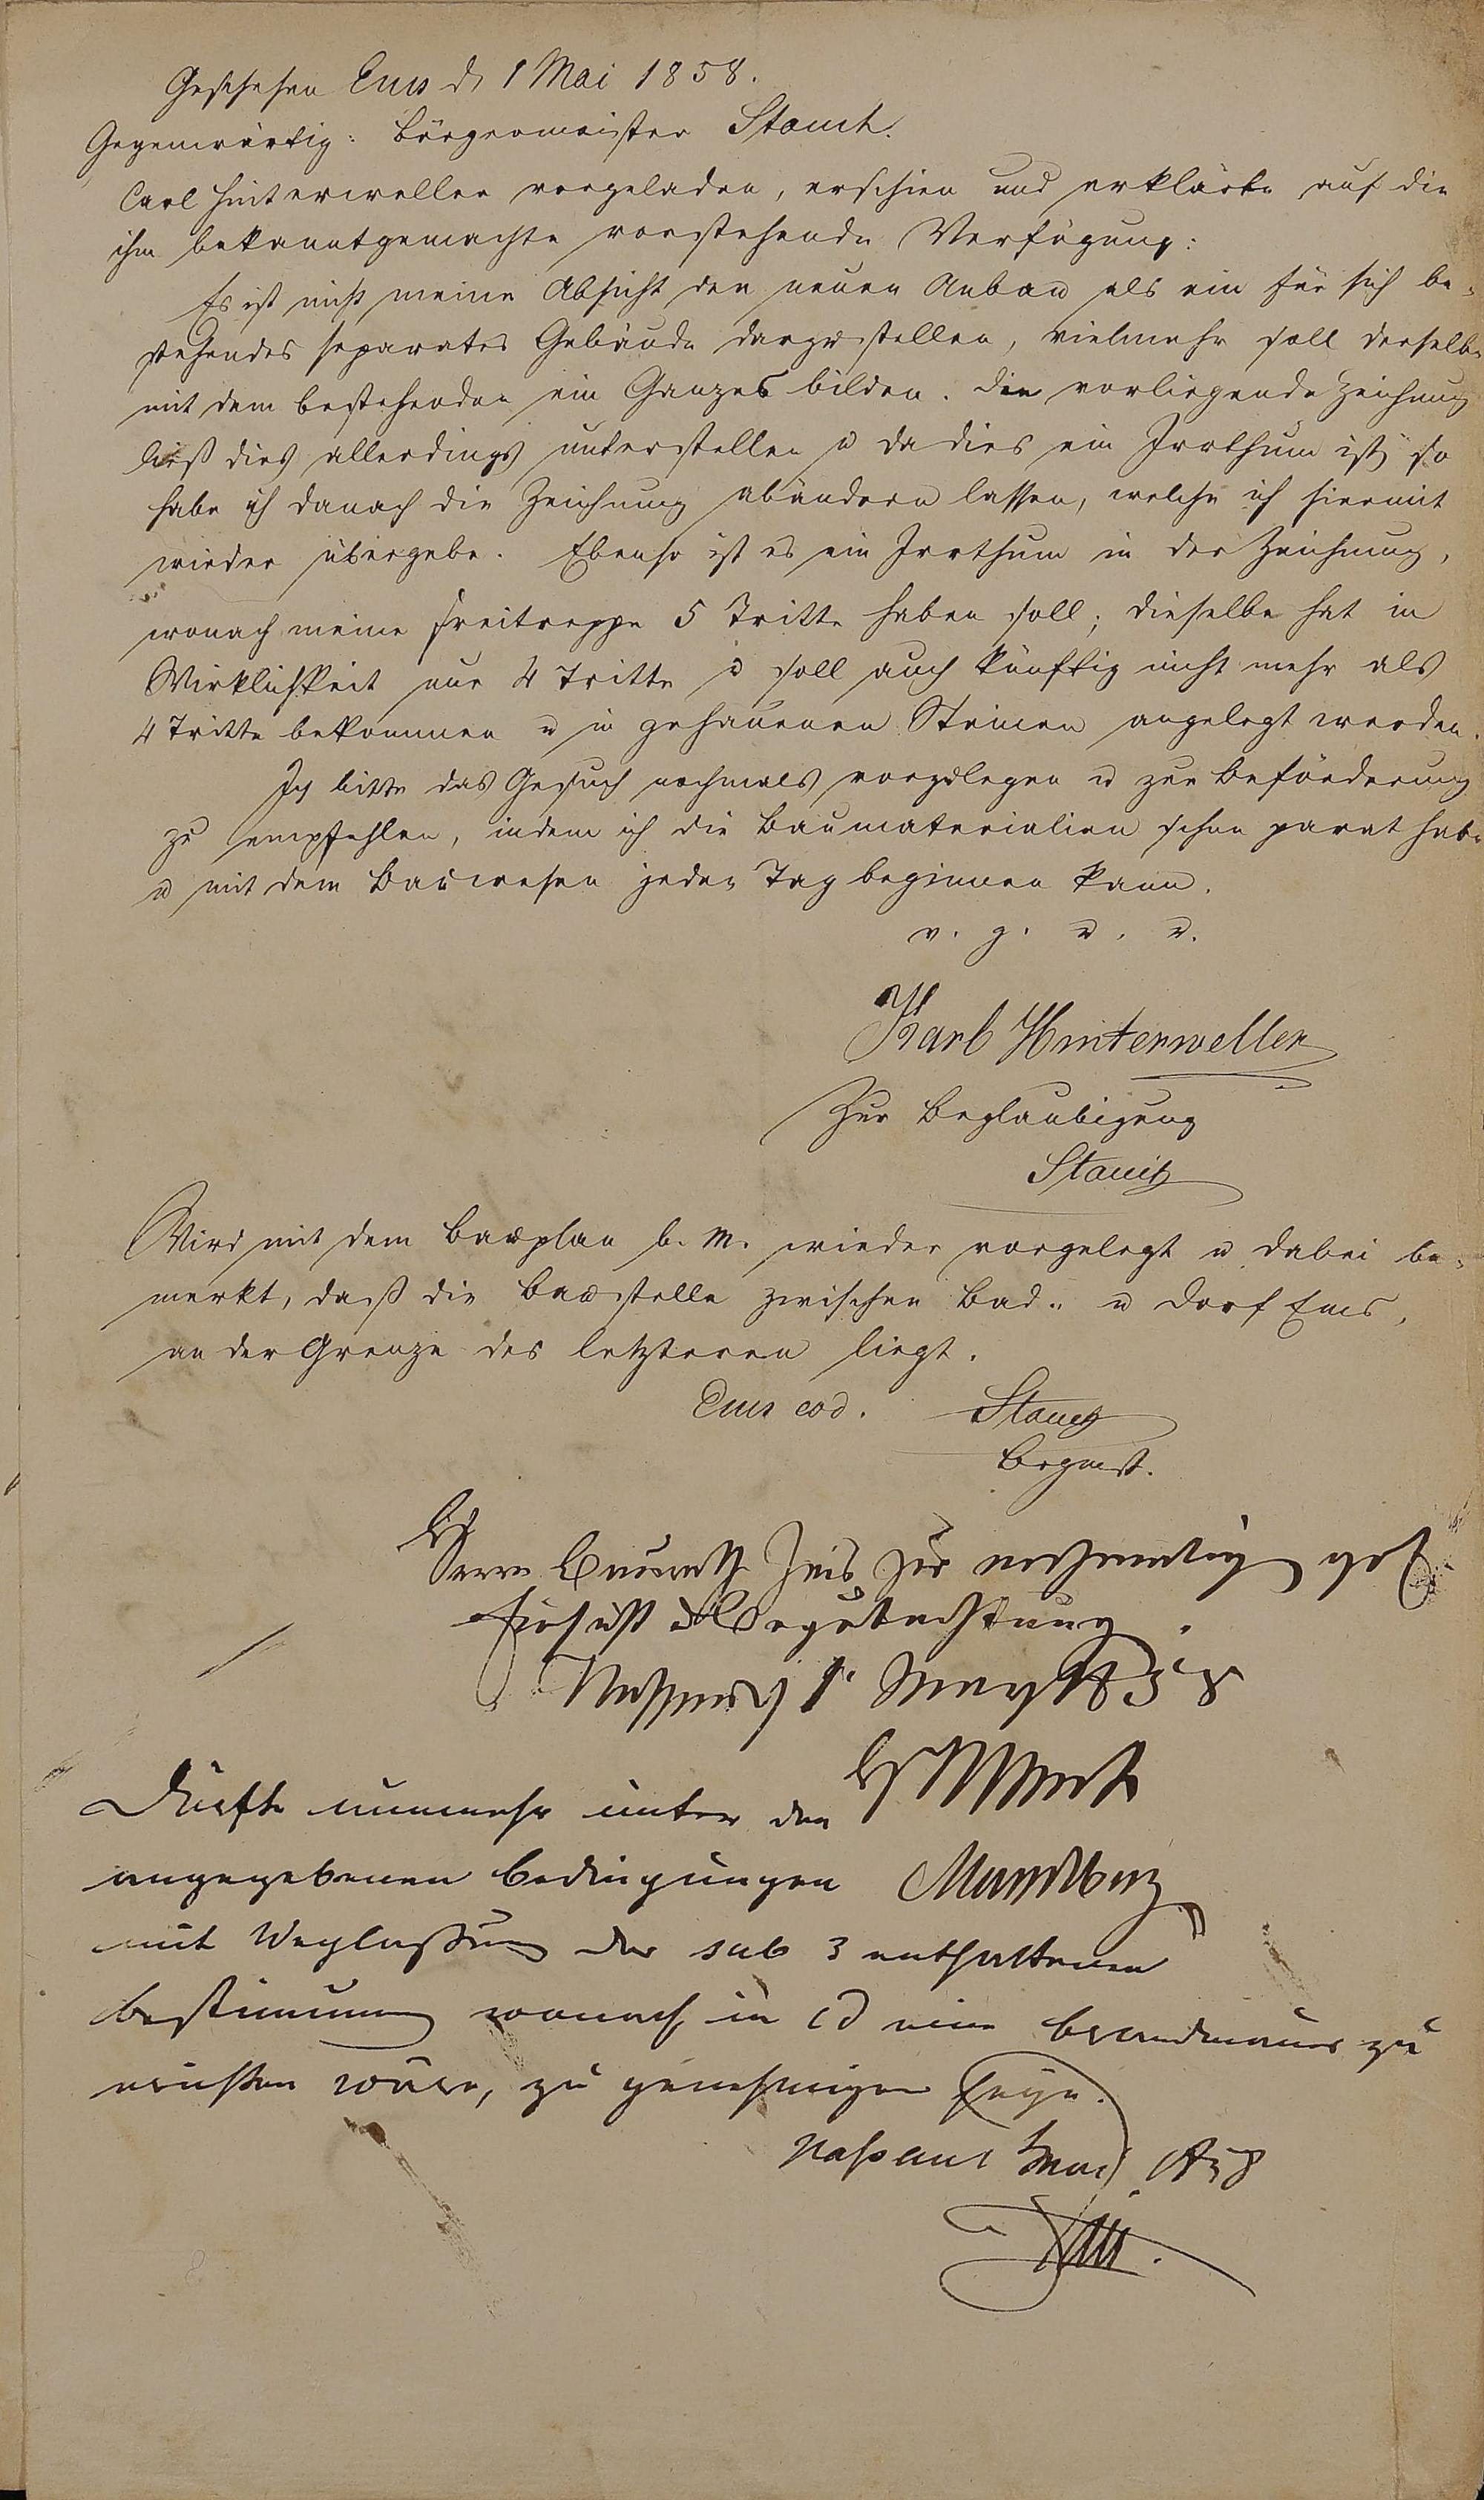 Geschehen Ems d. 1 Mai 1858.
Gegenwärtig: Bürgermeister Stauch.
Carl Hinterweller vorgeladen, erschien und erklärte auf die
ihm bekanntgemachte vorstehende Verfügung:
Es ist nicht meine Absicht den neuen Anbau als ein für sich be-
stehendes separates Gebäude darzustellen, vielmehr soll derselbe
mit dem bestehenden ein Ganzes bilden. Die vorliegende Zeichnung
ließ dies allerdings unterstellen u da dies ein Irrthum ist, so
habe ich danach die Zeichnung abändern lassen, welche ich hiermit
wieder übergebe. Ebenso ist es ein Irrthum in der Zeichnung,
wonach meine Freitreppe 5 Tritte haben soll; dieselbe hat in
Wirklichkeit nur 4 Tritte u soll auch künftig nicht mehr als
4 Tritte bekommen u in gehauenen Steinen angelegt werden.
Ich bitte das Gesuch nochmals vorzulegen u zur Beförderung
zu empfehlen, indem ich die Baumaterialien schon parat habe
u mit dem Bauwesen jeden Tag beginnen kann.
v. g. u. u.
Karl Hinterweller
Zur Beglaubigung
Stauch
Wird mit dem Bauplan b. m. wieder vorgelegt u dabei be-
merkt, daß die Baustelle zwischen Bad- u Dorf Ems,
an der Grenze des letzteren liegt.
Ems eod. Stauch
Brgmst.
Herrn Baurath Zais zur nochmaligen gef.
Einsicht u Begutachtung.
Nassau 1. May 1858
Dürfte nunmehr unter den
angegebenen Bedingungen
mit Weglassung der sub 3 enthaltenen
Bestimmung wonach in cd eine Brandmauer zu
errichten wäre, zu genehmigen seyn.
Nassau Mai 1858
Zais.